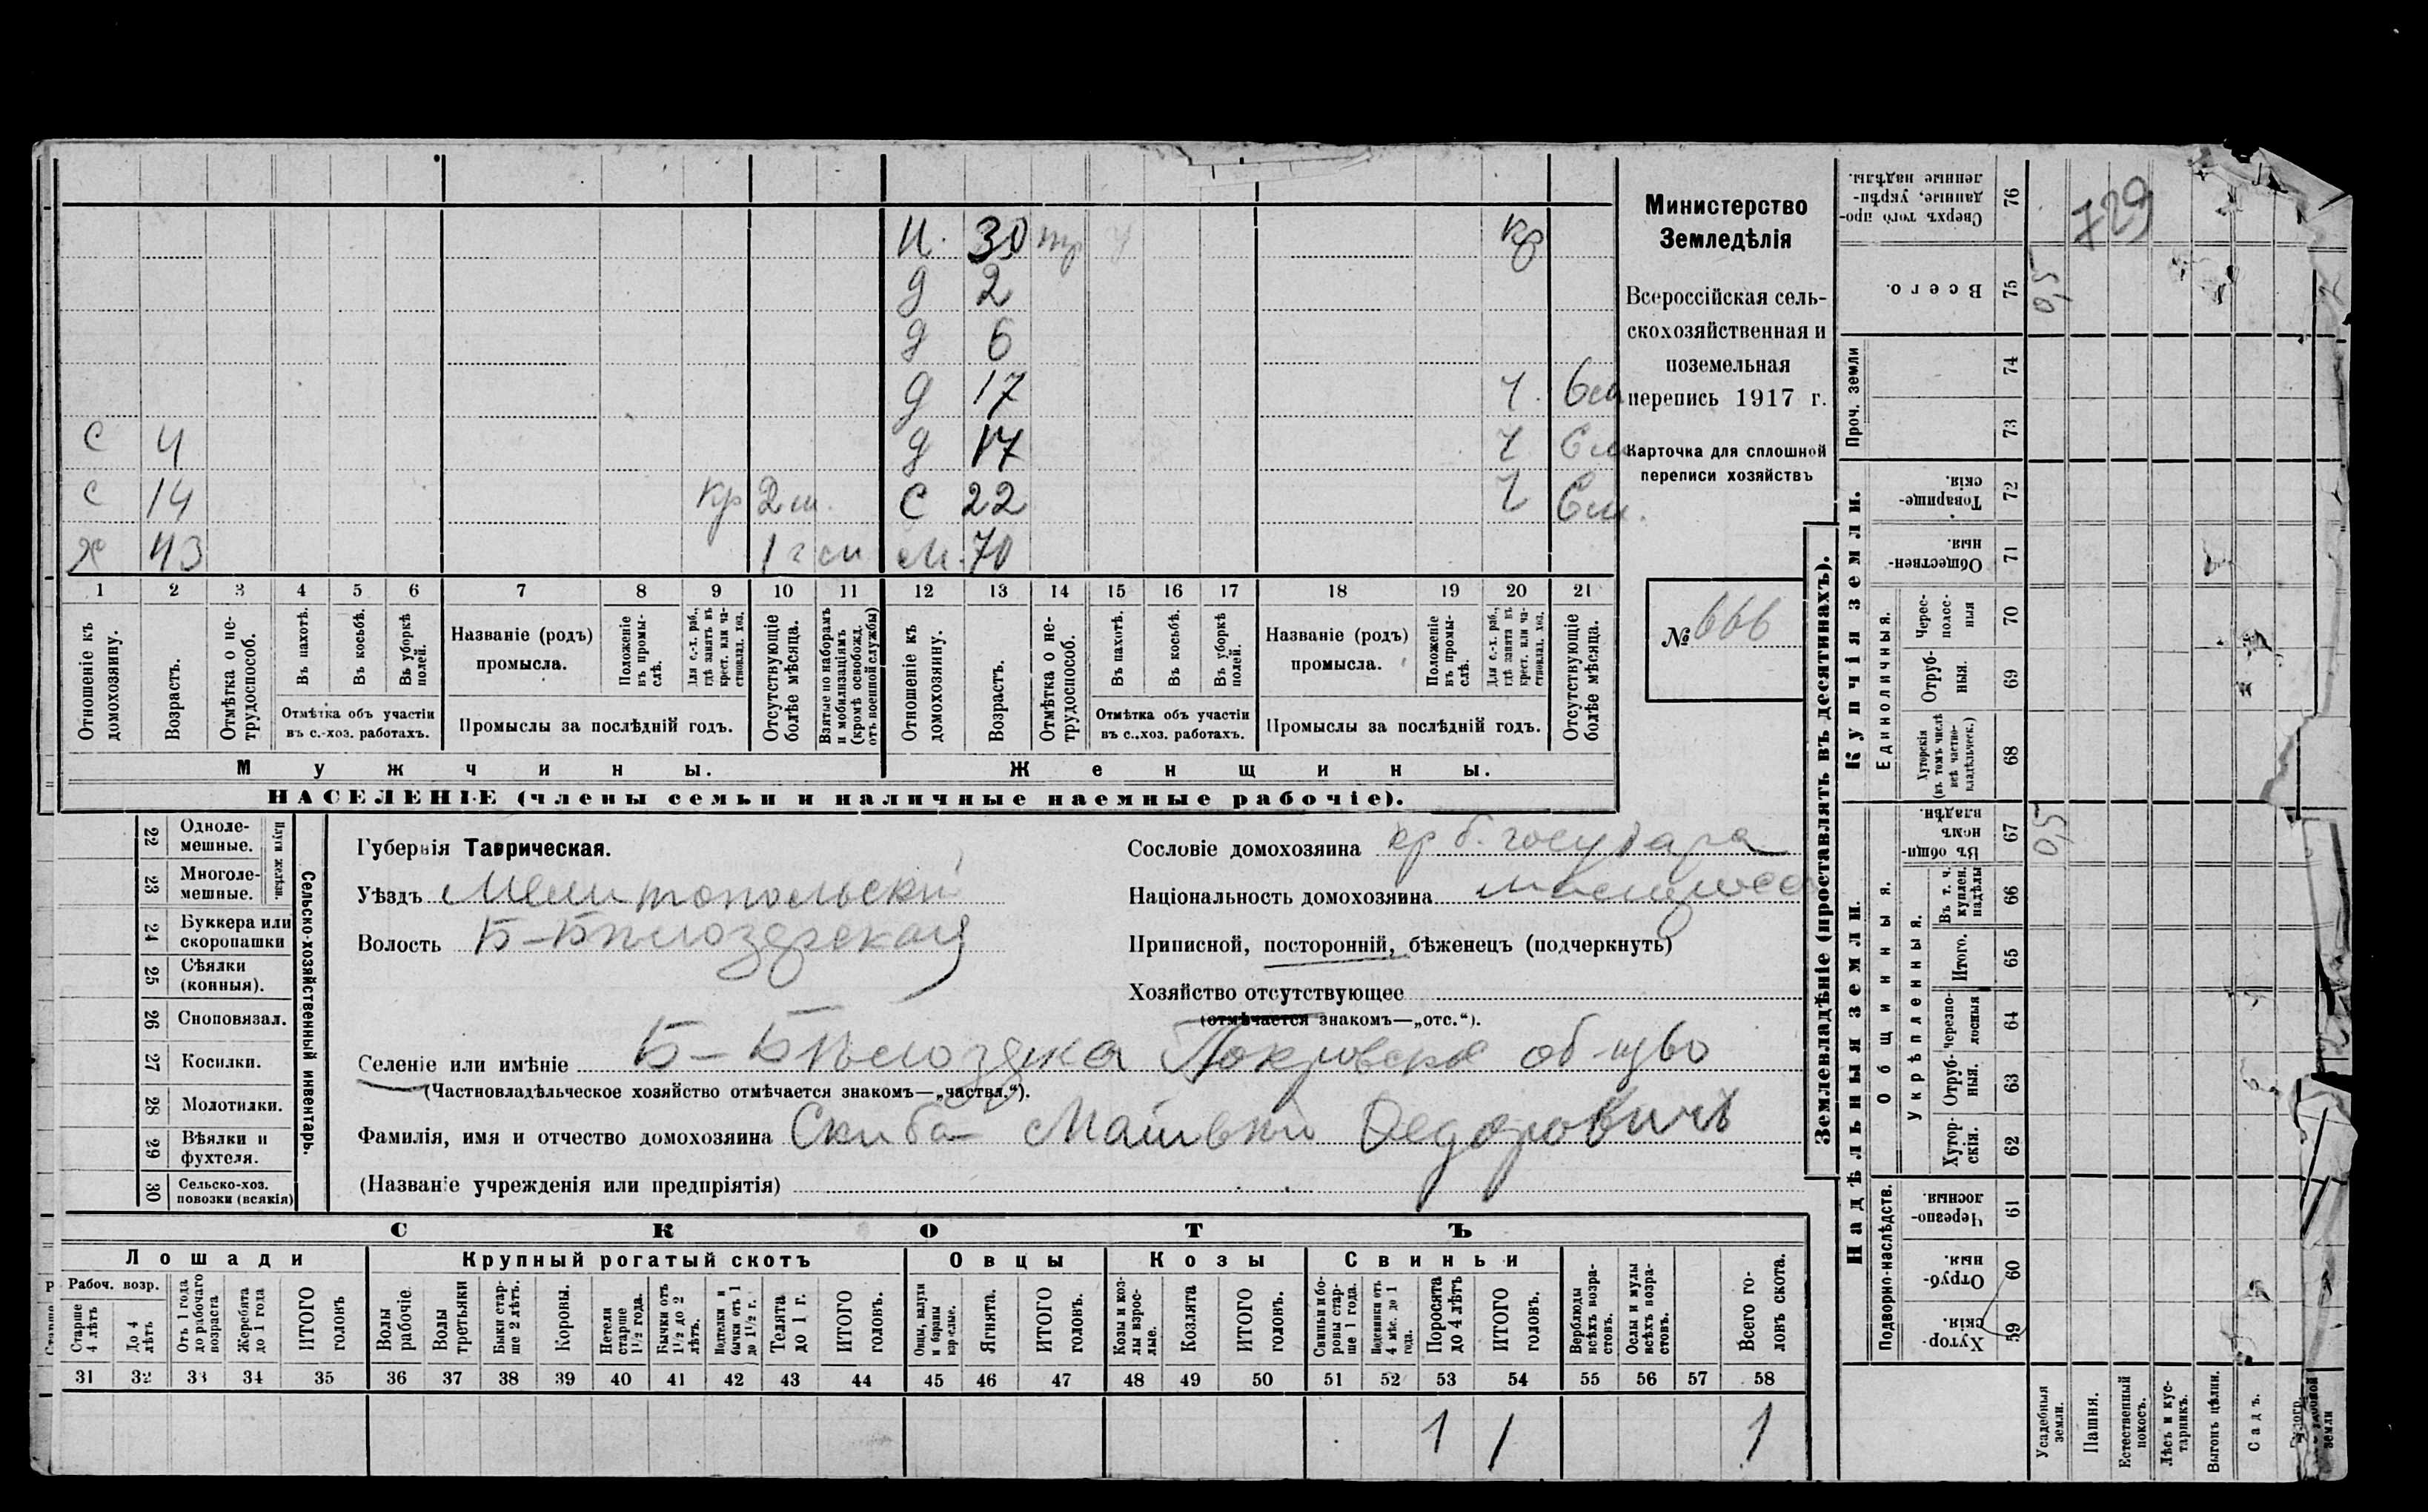 И. 30 тр кр
д 2
д 6
д 17 ч. 6 м
с 4 д 17 ч 6 м
с 14 кр 2 м. с 22 ч 6 м.
х 43 1 г м. 70
1 2 3 4 5 6 7 8 9 10 11 12 13 14 15 16 17 18 19 20 21
Отношеніе къ домохозяину.
Возрастъ.
Отмѣтка о нетрудоспособ.
Въ пахотѣ.
Въ косьбѣ.
Въ уборкѣ полей.
Отмѣтка объ участіи въ с.-хоз. работахъ.
Названіе (родъ) промысла.
Положеніе въ промыслѣ.
Для с.-х. раб., гдѣ занятъ въ крест. или частновлад. хоз.
Промыслы за послѣдній годъ.
Отсутствующіе болѣе мѣсяца.
Взятые по наборамъ и мобилизаціямъ (кромѣ освобожд. отъ военной службы)
Отношеніе къ домохозяину.
Возрастъ.
Отмѣтка о нетрудоспособ.
Въ пахотѣ.
Въ косьбѣ.
Въ уборкѣ полей.
Отмѣтка объ участіи въ с..хоз. работахъ.
Названіе (родъ) промысла.
Положеніе въ промыслѣ.
Для с.-х. раб., гдѣ занята въ крест. или частновлад. хоз.
Промыслы за послѣдній годъ.
Отсутствующіе болѣе мѣсяца.
Мужчины. Женщины.
НАСЕЛЕНІЕ (члены семьи и наличные наемные рабочіе).
Министерство
Земледѣлія
Всероссійская сель-
скохозяйственная и
поземельная
перепись 1917 г.
Карточка для сплошной
переписи хозяйствъ
№ 666
Сельско-хозяйственный инвентарь.
Плуги желѣзн.
22 Одноле-мешные.
23 Многоле-мешные.
24 Буккера или скоропашки
25 Сѣялки (конныя).
26 Сноповязал.
27 Косилки.
28 Молотилки.
29 Вѣялки и фухтеля.
30 Сельско-хоз. повозки (всякія)
Губернія Таврическая.
Уѣздъ Мелитопольскій
Волость Б-Бѣлозерская
Сословіе домохозяина кр б. государ
Національность домохозяина малорос
Приписной, посторонній, бѣженецъ (подчеркнуть)
Хозяйство отсутствующее
(отмѣчается знакомъ—„отс.“).
Селеніе или имѣніе Б-Бѣлозерка Покровское общво
(Частновладѣльческое хозяйство отмѣчается знакомъ—„частвл.“).
Фамилія, имя и отчество домохозяина Скиба Матвѣй Федоровичъ
(Названіе учрежденія или предпріятія)
СКОТЪ
Лошади Крупный рогатый скотъ Овцы Козы Свиньи
Рабоч. возр.
Старше 4 лѣтъ
До 4 лѣтъ
Отъ 1 года до рабочаго возраста
Жеребята до 1 года
ИТОГО головъ
Волы рабочіе.
Волы третьяки
Быки старше 2 лѣтъ.
Коровы.
Нетели старше 1½ года.
Бычки отъ 1½ до 2 лѣтъ.
Подтелки и бычки отъ 1 до 1½ г.
Телята до 1 г.
ИТОГО головъ.
Овцы, валухи и бараны взрослые.
Ягнята.
ИТОГО головъ.
Козы и козлы взрослые.
Козлята
ИТОГО головъ.
Свиньи и боровы старше 1 года.
Подсвинки отъ 4 мѣс. до 1 года.
Поросята до 4 лѣтъ
ИТОГО головъ.
Верблюды всѣхъ возрастовъ.
Ослы и мулы всѣхъ возрастовъ.
Всего головъ скота.
31 32 33 34 35 36 37 38 39 40 41 42 43 44 45 46 47 48 49 50 51 52 53 54 55 56 57 58
1 1 1
Землевладѣніе (проставлять въ десятинахъ).
Надѣльныя земли.
Купчія земли.
Проч. земли
Подворно-наслѣдств.
Общинныя.
Укрѣпленныя.
Единоличныя.
Сверхъ того проданные, укрѣпленные надѣлы. 76
Всего. 75 0,5
74
73
Товарищескія. 72
Общественныя. 71
Чересполосныя 70
Отрубныя. 69
Хуторскія (въ томъ числѣ всѣ частновладѣльческ.) 68
Въ общинномъ владѣн. 67 0,5
Въ т. ч. куплен. надѣлы 66
Итого. 65
Черезполосныя 64
Отрубныя. 63
Хуторскія. 62
Черезполосныя. 61
Отрубныя. 60
Хуторскія. 59
729
Усадебныя земли.
Пашня.
Естественный покосъ.
Лѣсъ и кустарникъ.
Выгонъ цѣлин.
Садъ.
земли